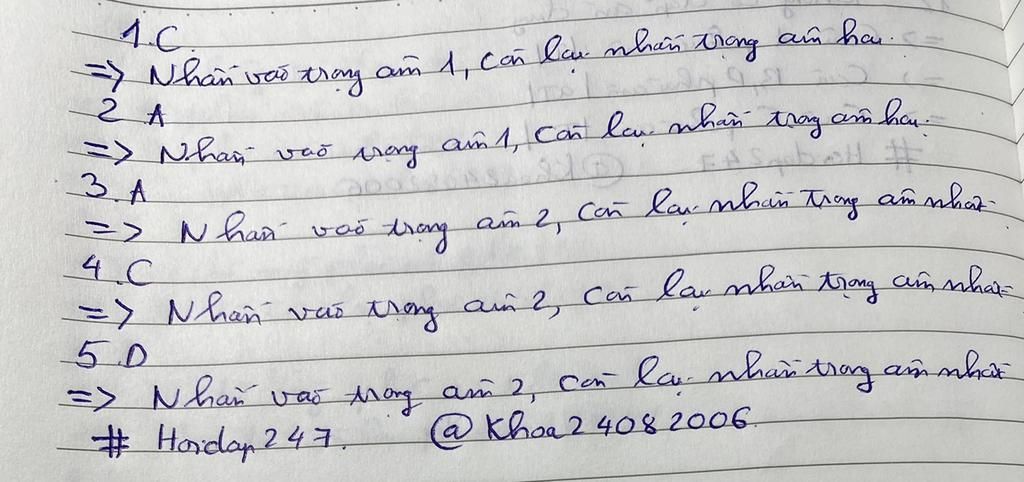 1.C.
=> Nhấn vào trọng âm 1, còn lại nhấn trọng âm hai.
2 A
=> Nhấn vào trọng âm 1, còn lại nhấn trọng âm hai.
3.A
=> Nhấn vào trọng âm 2, còn lại nhấn trọng âm nhất.
4.C
=> Nhấn vào trọng âm 2, còn lại nhấn trọng âm nhất
5.D
=> Nhấn vào trọng âm 2, còn lại nhấn trọng âm nhất
# Hoidap247. @Khoa24082006.